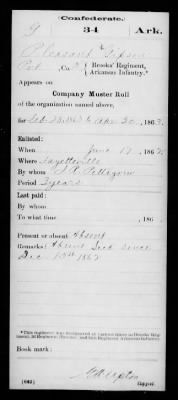 Confederate.
G 34 Ark.
Pleasant Gipson
Pvt, Co. G, Brooks' Regiment, Arkansas Infantry.*
Appears on
Company Muster Roll
of the organization named above,
for Feb 28, 1863 to Apr 30, 1863.
Enlisted:
When June 17, 1862.
Where Fayetteville
By whom T. P. Pettigrew
Period 3 years
Last paid:
By whom
To what time , 186 .
Present or absent Absent
Remarks: Absent Sick since
Dec 10th 1862
*This regiment was designated at various times as Brooks' Regiment,
Book mark:
(642) Copyist.